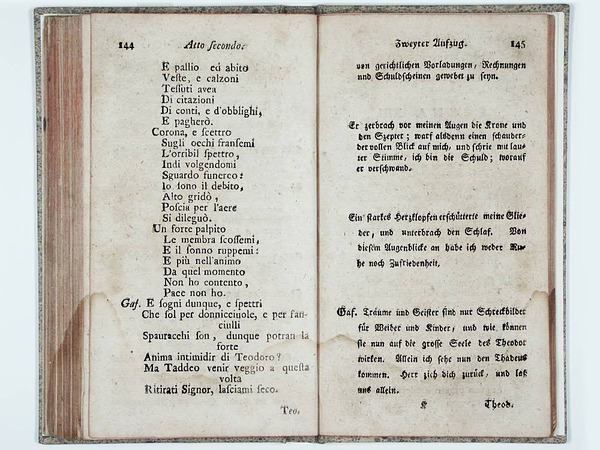 144 Atto secondo.
E pallio ed abito
Veste, e calzoni
Tessuti avea
Di citazioni
Di conti, e d'obblighi,
E pagherò.
Corona, e scettro
Sugli occhi fransemi
L'orribil spettro,
Indi volgendomi
Sguardo funereo:
Io sono il debito,
Alto gridò,
Poscia per l'aere
Si dileguò.
Un forte palpito
Le membra scossemi,
E il sonno ruppemi:
E più nell'animo
Da quel momento
Non ho contento,
Pace non ho.
Gaf. E sogni dunque, e spettri
Che sol per donnicciuole, e per fan-
ciulli
Spauracchi son, dunque potran la
forte
Anima intimidir di Teodoro?
Ma Taddeo venir veggio a questa
volta
Ritirati Signor, lasciami seco.
Teo.
Zweyter Aufzug. 145
von gerichtlichen Vorladungen, Rechnungen
und Schuldscheinen gewebet zu seyn.
Er zerbrach vor meinen Augen die Krone und
den Szepter; warf alsdenn einen schauder-
der vollen Blick auf mich, und schrie mit lau-
ter Stimme, ich bin die Schuld; worauf
er verschwand.
Ein starkes Herzklopfen erschütterte meine Glie-
der, und unterbrach den Schlaf. Von
diesem Augenblicke an habe ich weder Ru-
he noch Zufriedenheit.
Gaf. Träume und Geister sind nur Schreckbilder
für Weiber und Kinder, und wie können
sie nun auf die grosse Seele des Theodor
wirken. Allein ich sehe nun den Thadeus
kommen. Herr zieh dich zurück, und laß
uns allein.
K Theod.